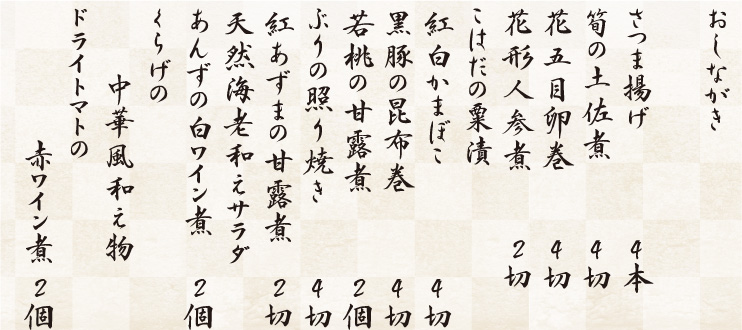 おしながき
さつま揚げ 4本
筍の土佐煮 4切
花五目卵巻 4切
花形人参煮 2切
こはだの粟漬
紅白かまぼこ 4切
黒豚の昆布巻 4切
若桃の甘露煮 2個
ぶりの照り焼き 4切
紅あずまの甘露煮 2切
天然海老和えサラダ
あんずの白ワイン煮 2個
くらげの
中華風和え物
ドライトマトの
赤ワイン煮 2個